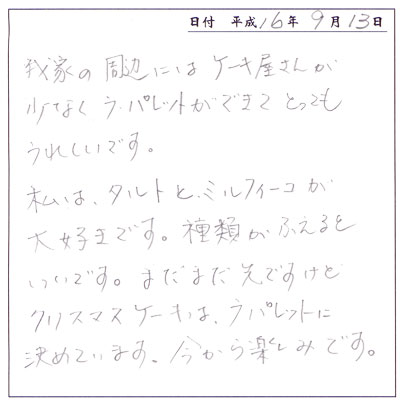 日付 平成16年9月13日
我家の周辺にはケーキ屋さんが
少なくラ・パレットができてとっても
うれしいです。
私は、タルトとミルフィーユが
大好きです。種類がふえると
いいです。まだまだ先ですけど
クリスマスケーキは、ラパレットに
決めています。今から楽しみです。